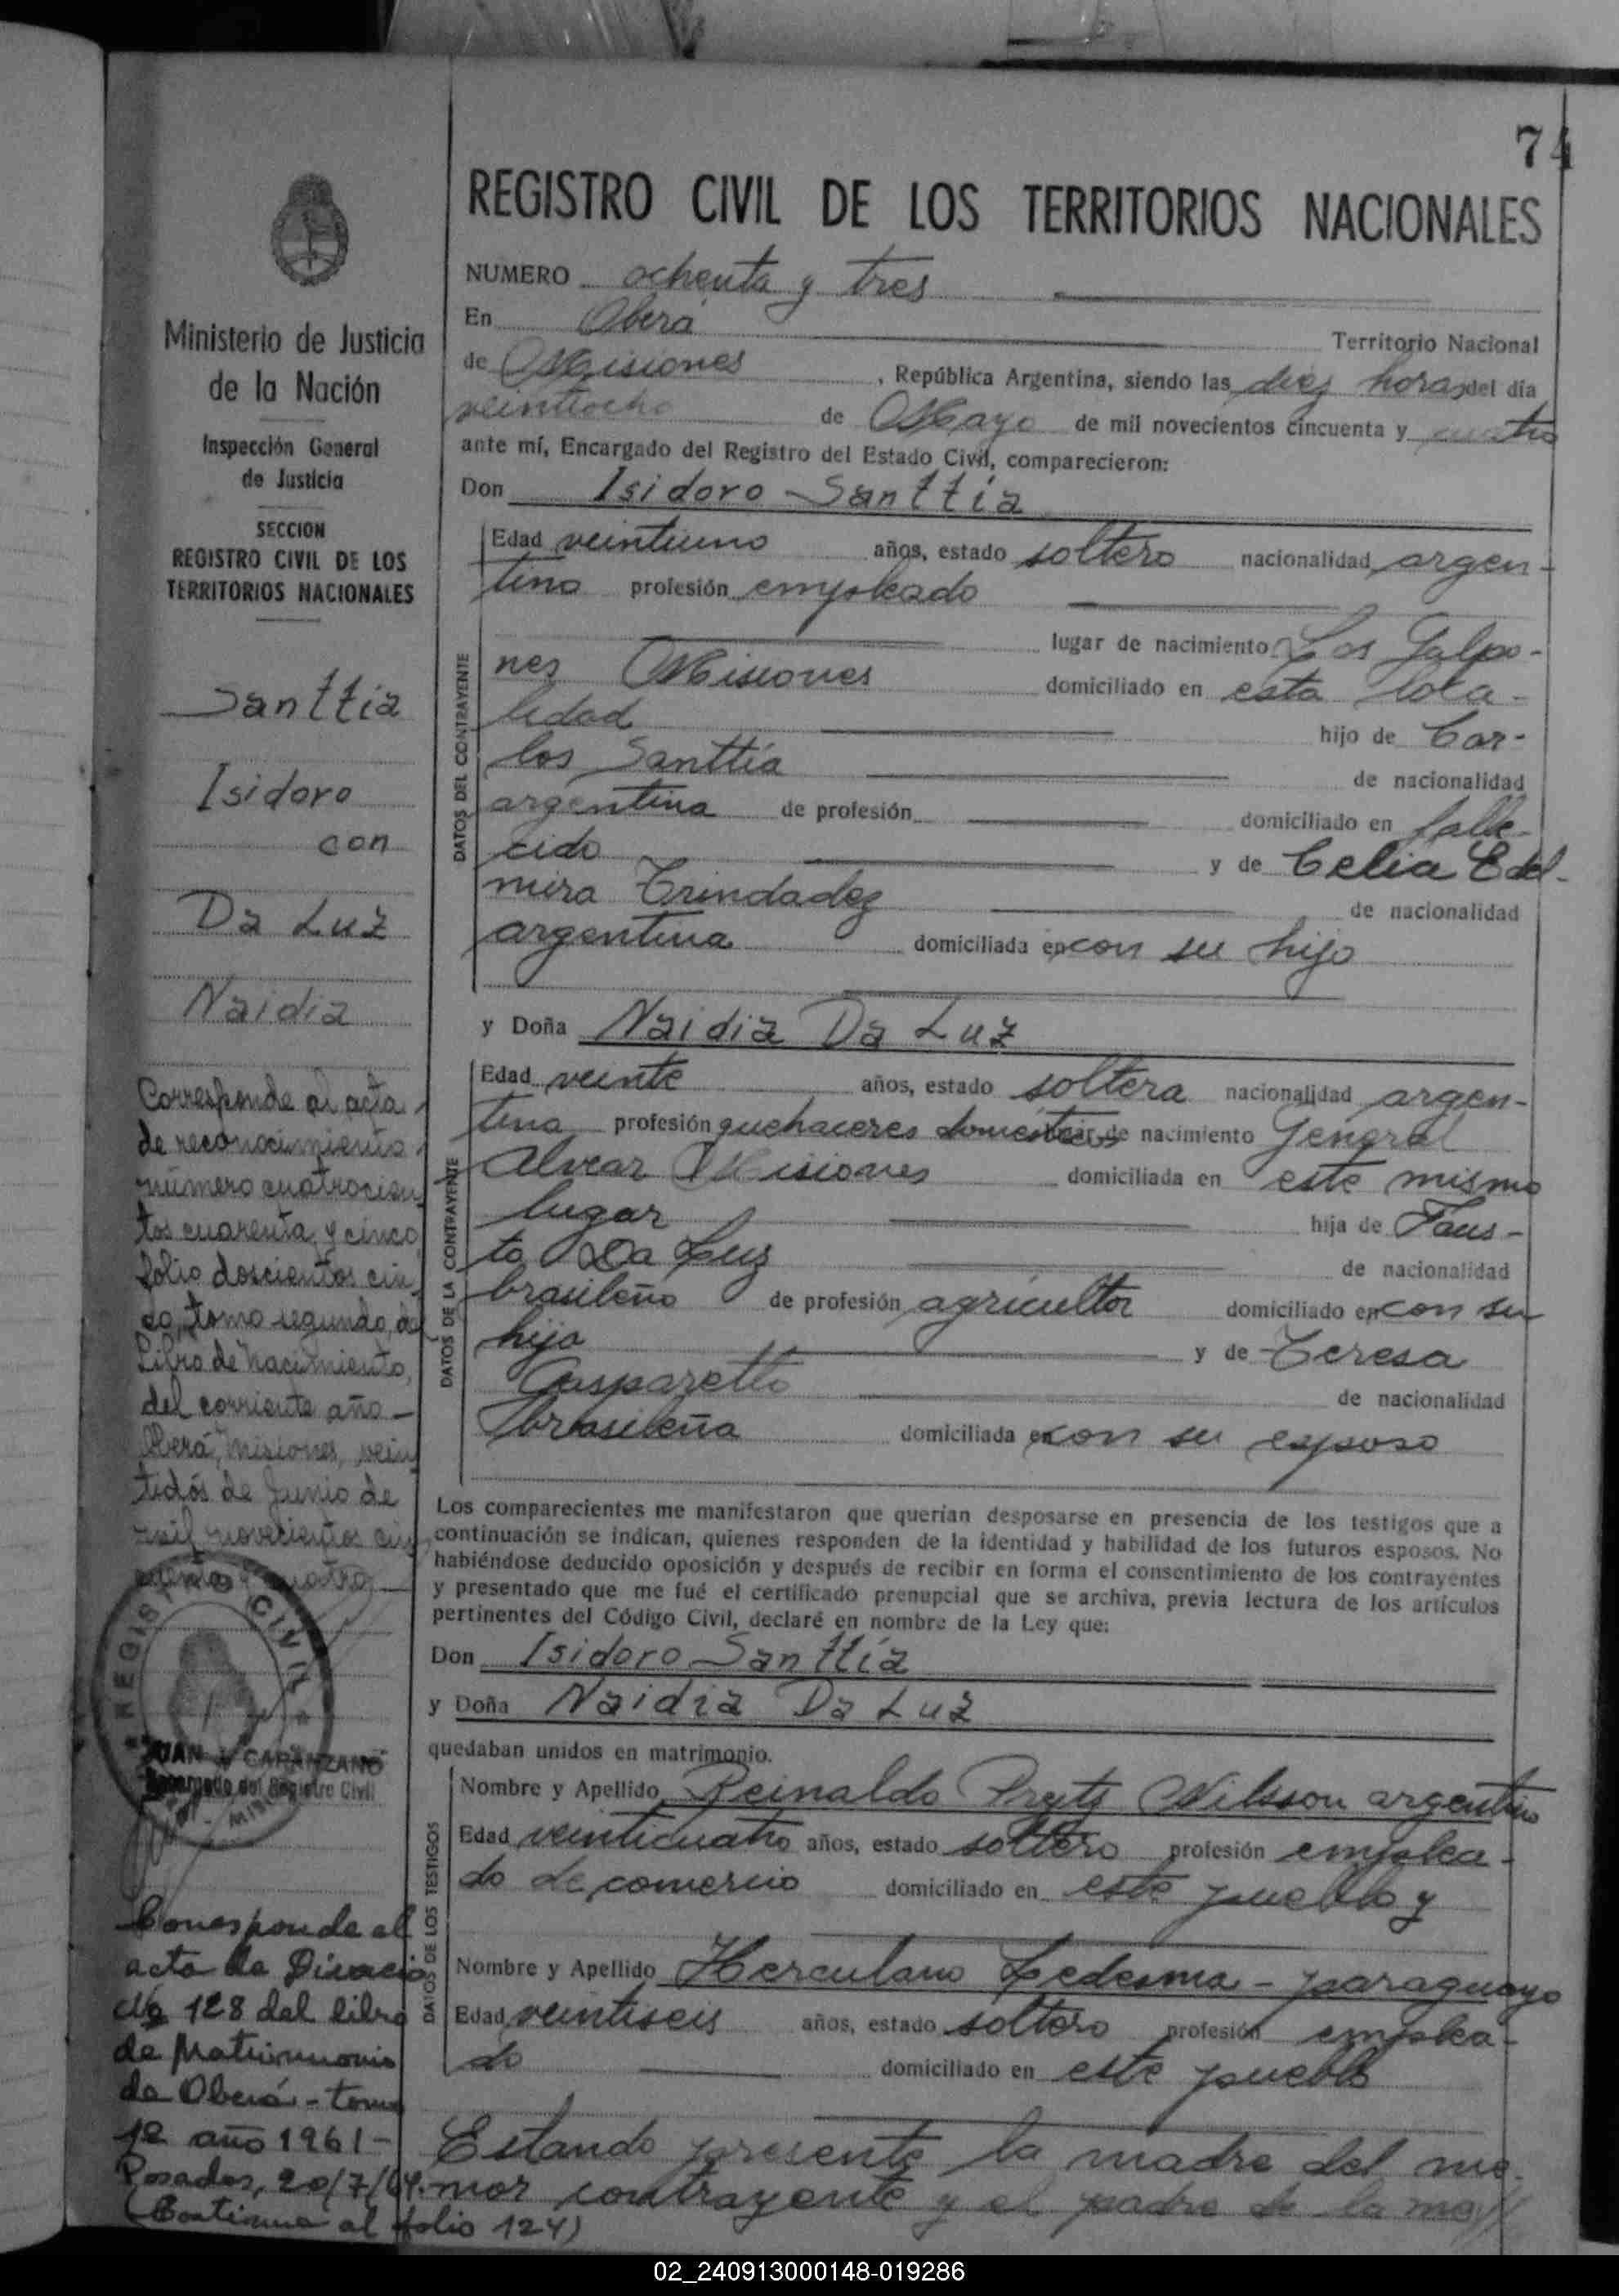 74
REGISTRO CIVIL DE LOS TERRITORIOS NACIONALES
NUMERO ochenta y tres
En Oberá
Territorio Nacional
de Misiones, República Argentina, siendo las diez horas del día
veintiocho de Mayo de mil novecientos cincuenta y cuatro
ante mí, Encargado del Registro del Estado Civil, comparecieron:
Don Isidoro Santtía
Edad veintiuno años, estado soltero nacionalidad argen-
tina profesión empleado
lugar de nacimiento Los Galpo-
nes Misiones domiciliado en esta loca-
lidad hijo de Car-
los Santtía de nacionalidad
argentina de profesión domiciliado en falle-
cido y de Celia Edel-
mira Trindadez de nacionalidad
argentina domiciliada en con su hijo
y Doña Naidia Da Luz
Edad veinte años, estado soltera nacionalidad argen-
tina profesión quehaceres domésticos lugar de nacimiento General
Alvear Misiones domiciliada en este mismo
lugar hija de Faus-
to Da Luz de nacionalidad
brasileño de profesión agricultor domiciliado en con su
hija y de Teresa
Gasparetto de nacionalidad
brasileña domiciliada en con su esposo
Los comparecientes me manifestaron que querían desposarse en presencia de los testigos que a
continuación se indican, quienes responden de la identidad y habilidad de los futuros esposos. No
habiéndose deducido oposición y después de recibir en forma el consentimiento de los contrayentes
y presentado que me fué el certificado prenupcial que se archiva, previa lectura de los artículos
pertinentes del Código Civil, declaré en nombre de la Ley que:
Don Isidoro Santtía
y Doña Naidia Da Luz
quedaban unidos en matrimonio.
Nombre y Apellido Reinaldo Nilsson argentino
Edad veinticuatro años, estado soltero profesión emplea-
do de comercio domiciliado en este pueblo y
Nombre y Apellido Herculano Ledesma - paraguayo
Edad veintiseis años, estado soltero profesión emplea-
do domiciliado en este pueblo
Estando presente la madre del me-
nor contrayente y el padre de la me//
DATOS DEL CONTRAYENTE
DATOS DE LA CONTRAYENTE
DATOS DE LOS TESTIGOS
Ministerio de Justicia
de la Nación
Inspección General
de Justicia
SECCION
REGISTRO CIVIL DE LOS
TERRITORIOS NACIONALES
Santtía
Isidoro
con
Da Luz
Naidia
Corresponde al acta
de reconocimiento
número cuatrocien
tos cuarenta y cinco
folio doscientos cin
co, tomo segundo, del
Libro de Nacimiento,
del corriente año -
Oberá, Misiones, vein
tidós de Junio de
mil novecientos cin
cuenta y cuatro
REGISTRO CIVIL
JUAN CARANZANO
Encargado del Registro Civil
Corresponde al
acta de Divorcio
No 128 del libro
de Matrimonio
de Oberá - tomo
1º año 1961 -
Posadas, 20/7/64.
(Continua al folio 124)
02_240913000148-019286